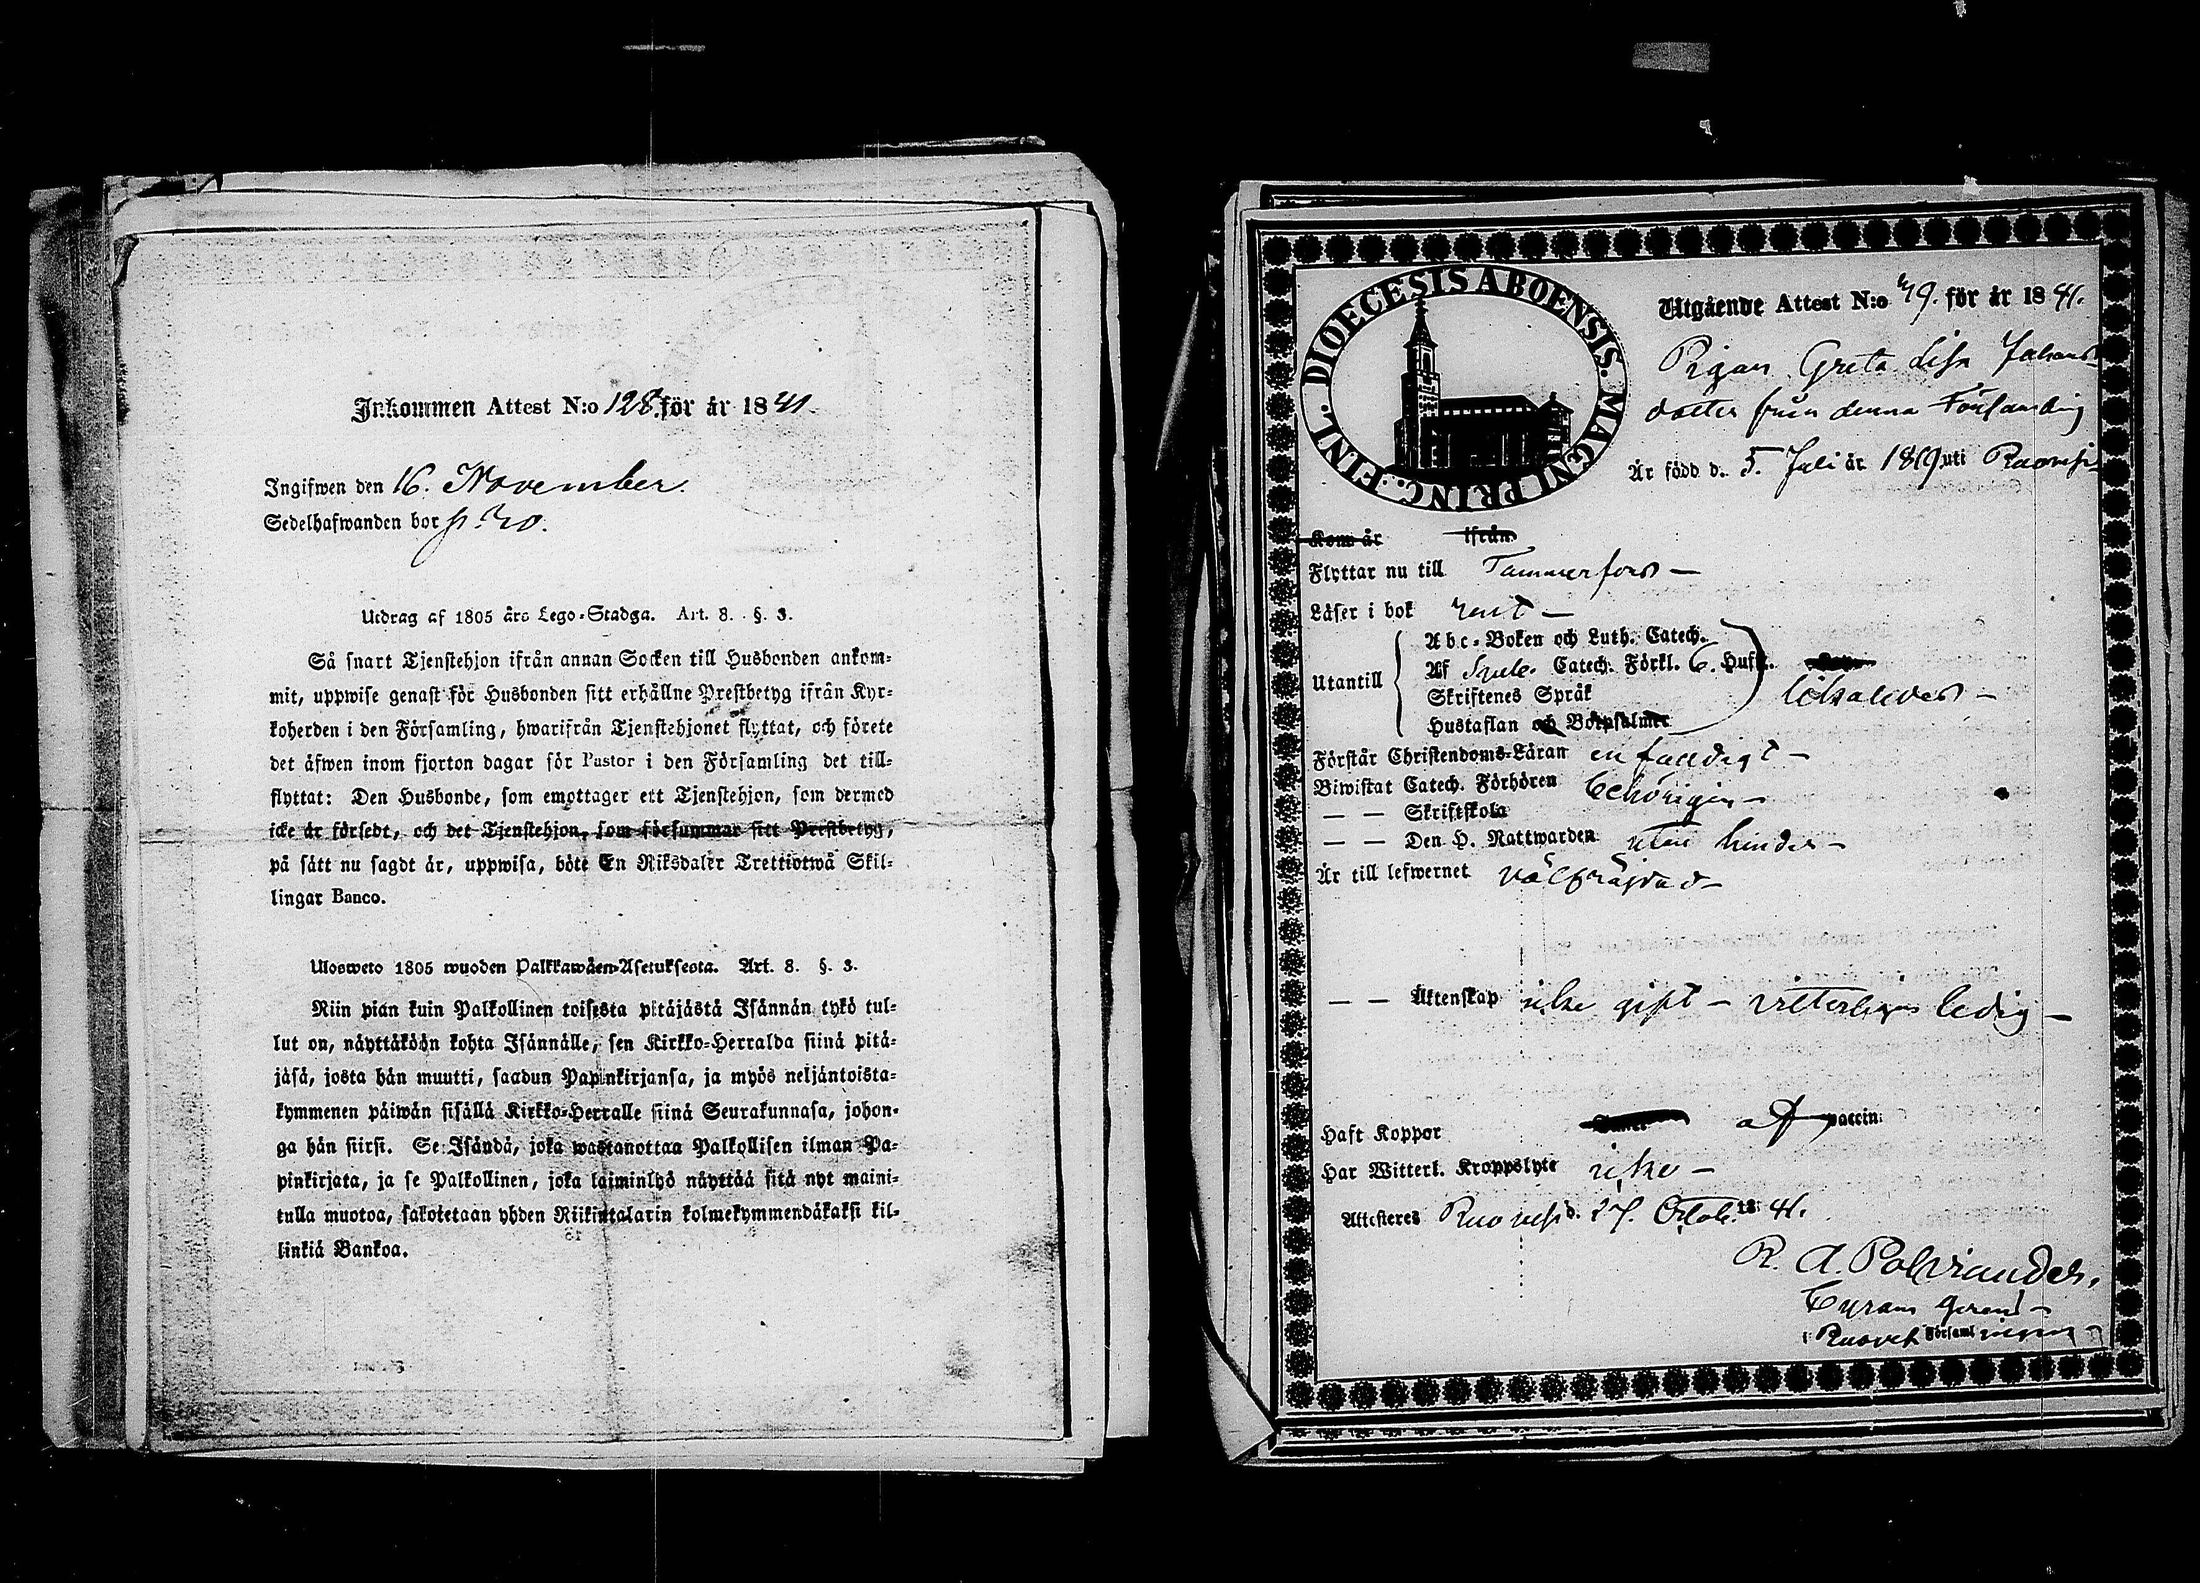 Inkommen Attest N:o 128. för år 1841.
Ingifwen den 16. November.
Sedelhafwanden bor p. 20.
Utdrag af 1805 års Lego-Stadga. Art. 8. §. 3.
Så snart Tjenstehjon ifrån annan Socken till Husbonden ankom-
mit, uppwise genast för Husbonden sitt erhållne Prestbetyg ifrån Kyr-
koherden i den Församling, hwarifrån Tjenstehjonet flyttat, och förete
det äfwen inom fjorton dagar för Pastor i den Församling det till-
flyttat: Den Husbonde, som emottager ett Tjenstehjon, som dermed
icke är försedt, och det Tjenstehjon, som försummar sitt Prestbetyg,
på sätt nu sagdt är, uppwisa, böte En Riksdaler Trettiotwå Skil-
lingar Banco.
Ulosweto 1805 wuoden Palkkawäen-Asetuksesta. Art. 8. §. 3.
Niin pian kuin Palkollinen toisesta pitäjästä Isännän tykö tul-
lut on, näyttäköön kohta Isännälle, sen Kirkko-Herralda siinä pitä-
jäsä, josta hän muutti, saadun Papinkirjansa, ja myös neljäntoista-
kymmenen päiwän sisällä Kirkko-Herralle siinä Seurakunnasa, johon-
ga hän siirsi. Se Isändä, joka wastanottaa Palkollisen ilman Pa-
pinkirjata, ja se Palkollinen, joka laiminlyö näyttää sitä nyt maini-
tulla muotoa, sakotetaan yhden Riikintalarin kolmekymmendäkaksi kil-
linkiä Bankoa.
DIOECESIS ABOENSIS. MAGNI PRINC. FINL.
Utgående Attest N:o 49. för år 1841.
Pigan Greta Lisa Johans-
dotter från denna Församling
Är född d. 5. Juli år 1819 uti Ruovesi
Kom år ifrån
Flyttar nu till Tammerfors —
Läser i bok rent —
Utantill
Abc-Boken och Luth. Catech.
Af Sveb. Catech. Förkl. 6. Hufst.
Skriftenes Språk
Hustaflan och Botpsalmer
Förstår Christendoms-Läran enfaldigt —
Biwistat Catech. Förhören behörigen —
— — Skriftskola
— — Den H. Nattwarden utan hinder —
Är till lefwernet välfräjdad —
— — Äktenskap icke gift — vitterligen ledig —
Haft Koppor vaccin:
Har Witterl. Kroppslyte icke —
Attesteres Ruovesi d. 27. Octob. 1841.
R. A. Polviander,
i Ruovesi Församlingen